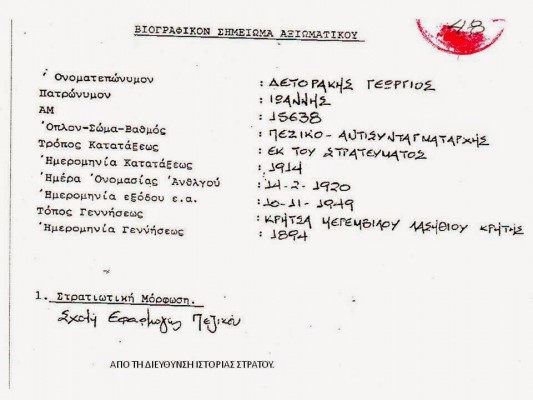 48
ΒΙΟΓΡΑΦΙΚΟΝ ΣΗΜΕΙΩΜΑ ΑΞΙΩΜΑΤΙΚΟΥ
Ὀνοματεπώνυμον : ΔΕΤΟΡΑΚΗΣ ΓΕΩΡΓΙΟΣ
Πατρώνυμον : ΙΩΑΝΝΗΣ
ΑΜ : 15638
Ὅπλον-Σῶμα-Βαθμός : ΠΕΖΙΚΟ - ΑΝΤΙΣΥΝΤΑΓΜΑΤΑΡΧΗΣ
Τρόπος Κατατάξεως : ΕΚ ΤΟΥ ΣΤΡΑΤΕΥΜΑΤΟΣ
Ἡμερομηνία Κατατάξεως : 1914
Ἡμέρα Ὀνομασίας Ἀνθλγοῦ : 14-2-1920
Ἡμερομηνία εξόδου ε.α. : 10-11-1949
Τόπος Γεννήσεως : ΚΡΗΤΣΑ ΜΕΡΕΜΒΙΛΟΥ ΛΑΣΗΘΙΟΥ ΚΡΗΤΗΣ
Ἡμερομηνία Γεννήσεως : 1894
1. Στρατιωτική Μόρφωση.
Σχολή Εφαρμογής Πεζικού
ΑΠΟ ΤΗ ΔΙΕΥΘΥΝΣΗ ΙΣΤΟΡΙΑΣ ΣΤΡΑΤΟΥ.